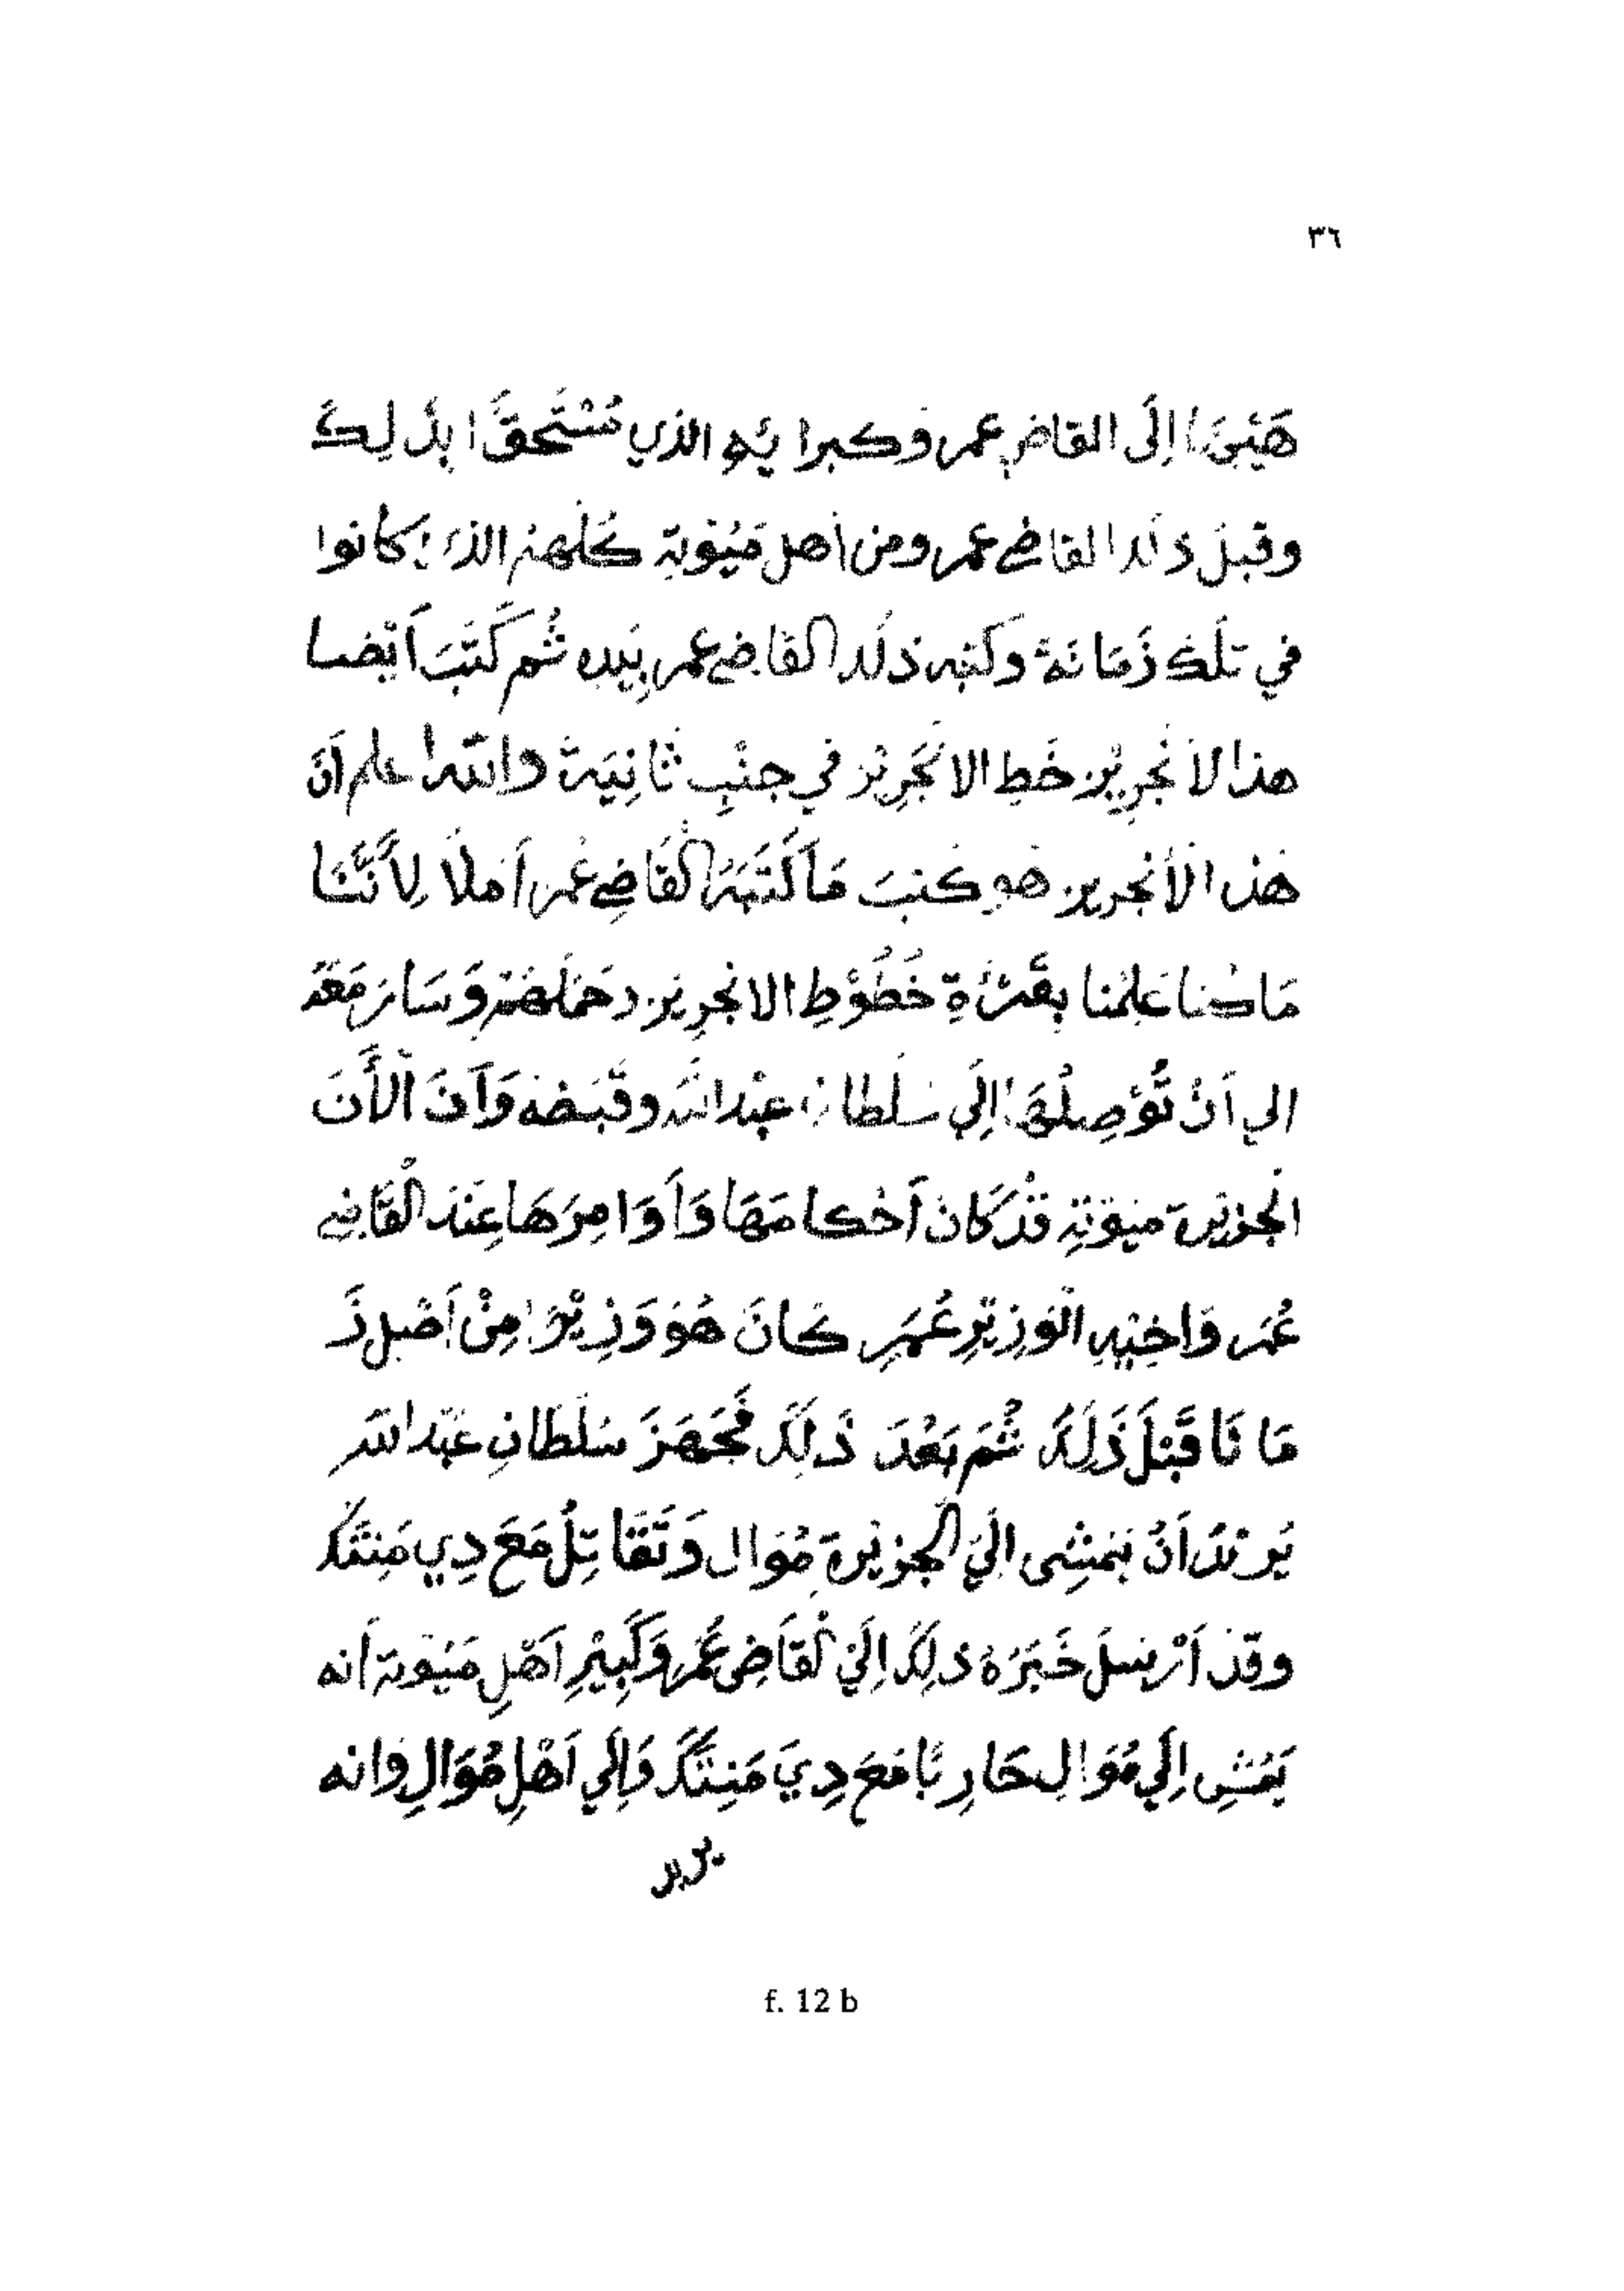 ٣٦
إِلَى القاضي عمر وكبرا الذي مُسْتَحَقًّا بِذَلِكَ
وقبلَ ذلك القاضي عمر ومن أهل مَيُوْتِة كُلُّهُمْ كانوا
في تلك زَمَانَة وكتبه ذلك القاضي عمر بِيَدِه ثُم كَتَبَ أَيْضا
هذا الأنْجِرِيْز خَطِ الانْجِرِيْز في جنْبِ ثَانِيَة والله اعلم اَنَّ
هَذا الْأَنْجريز هو كتبَ مَا كَتَبَهُ الْقَاضِي عُمَر أَمْلًا لِأَنَّنَا
مَا كنا عَلِمْنا بِقَرْأَةِ خُطُوْطِ الانْجِرِيْز وَسَارَ مَعَهُ
الي اَنْ تُوْصِلْهَا اِلَي سَلْطانِ عبْد الله وقَبَضَه وَاَنَ الْأَنَ
الْجزيْرة مَيوْتِة قَدْ كَانَ اَحْكامَهَا وَاَوَامِرَهَا عِنْدَ الْقَاضِي
عُمَر وَاخِيْهِ الْوَزِيْرِ عُمَرِ كَانَ هُوَ وَزِيْرًا مِنْ اَصْلِ زَ
مَانَا قَبْلَ ذَلِكَ ثُمَ بَعْدَ ذَلِكَ فَجَهَزَ سَلْطَانِ عَبْدالله
يُرِيْدُ اَنْ يَمْشِى الَيَ الْجزيْرة مُوَال وَتَقَاتِلُ مَعَ دِي مَنِتَكَ
وقدْ اَرْسَلَ خَبَرَهُ ذلِكَ اِلَيَ الْقَاضِى عُمَرَ وَكَبِيْرِ اَهْلِ مَيُوْتة اَنه
يَمْشِي اِلَي مُوَال حَارِبًا مَعَ دِيَ مَنِتَكَ وَاِلَي اَهْلِ مُوَالِ وَانه
يريد
f. 12 b